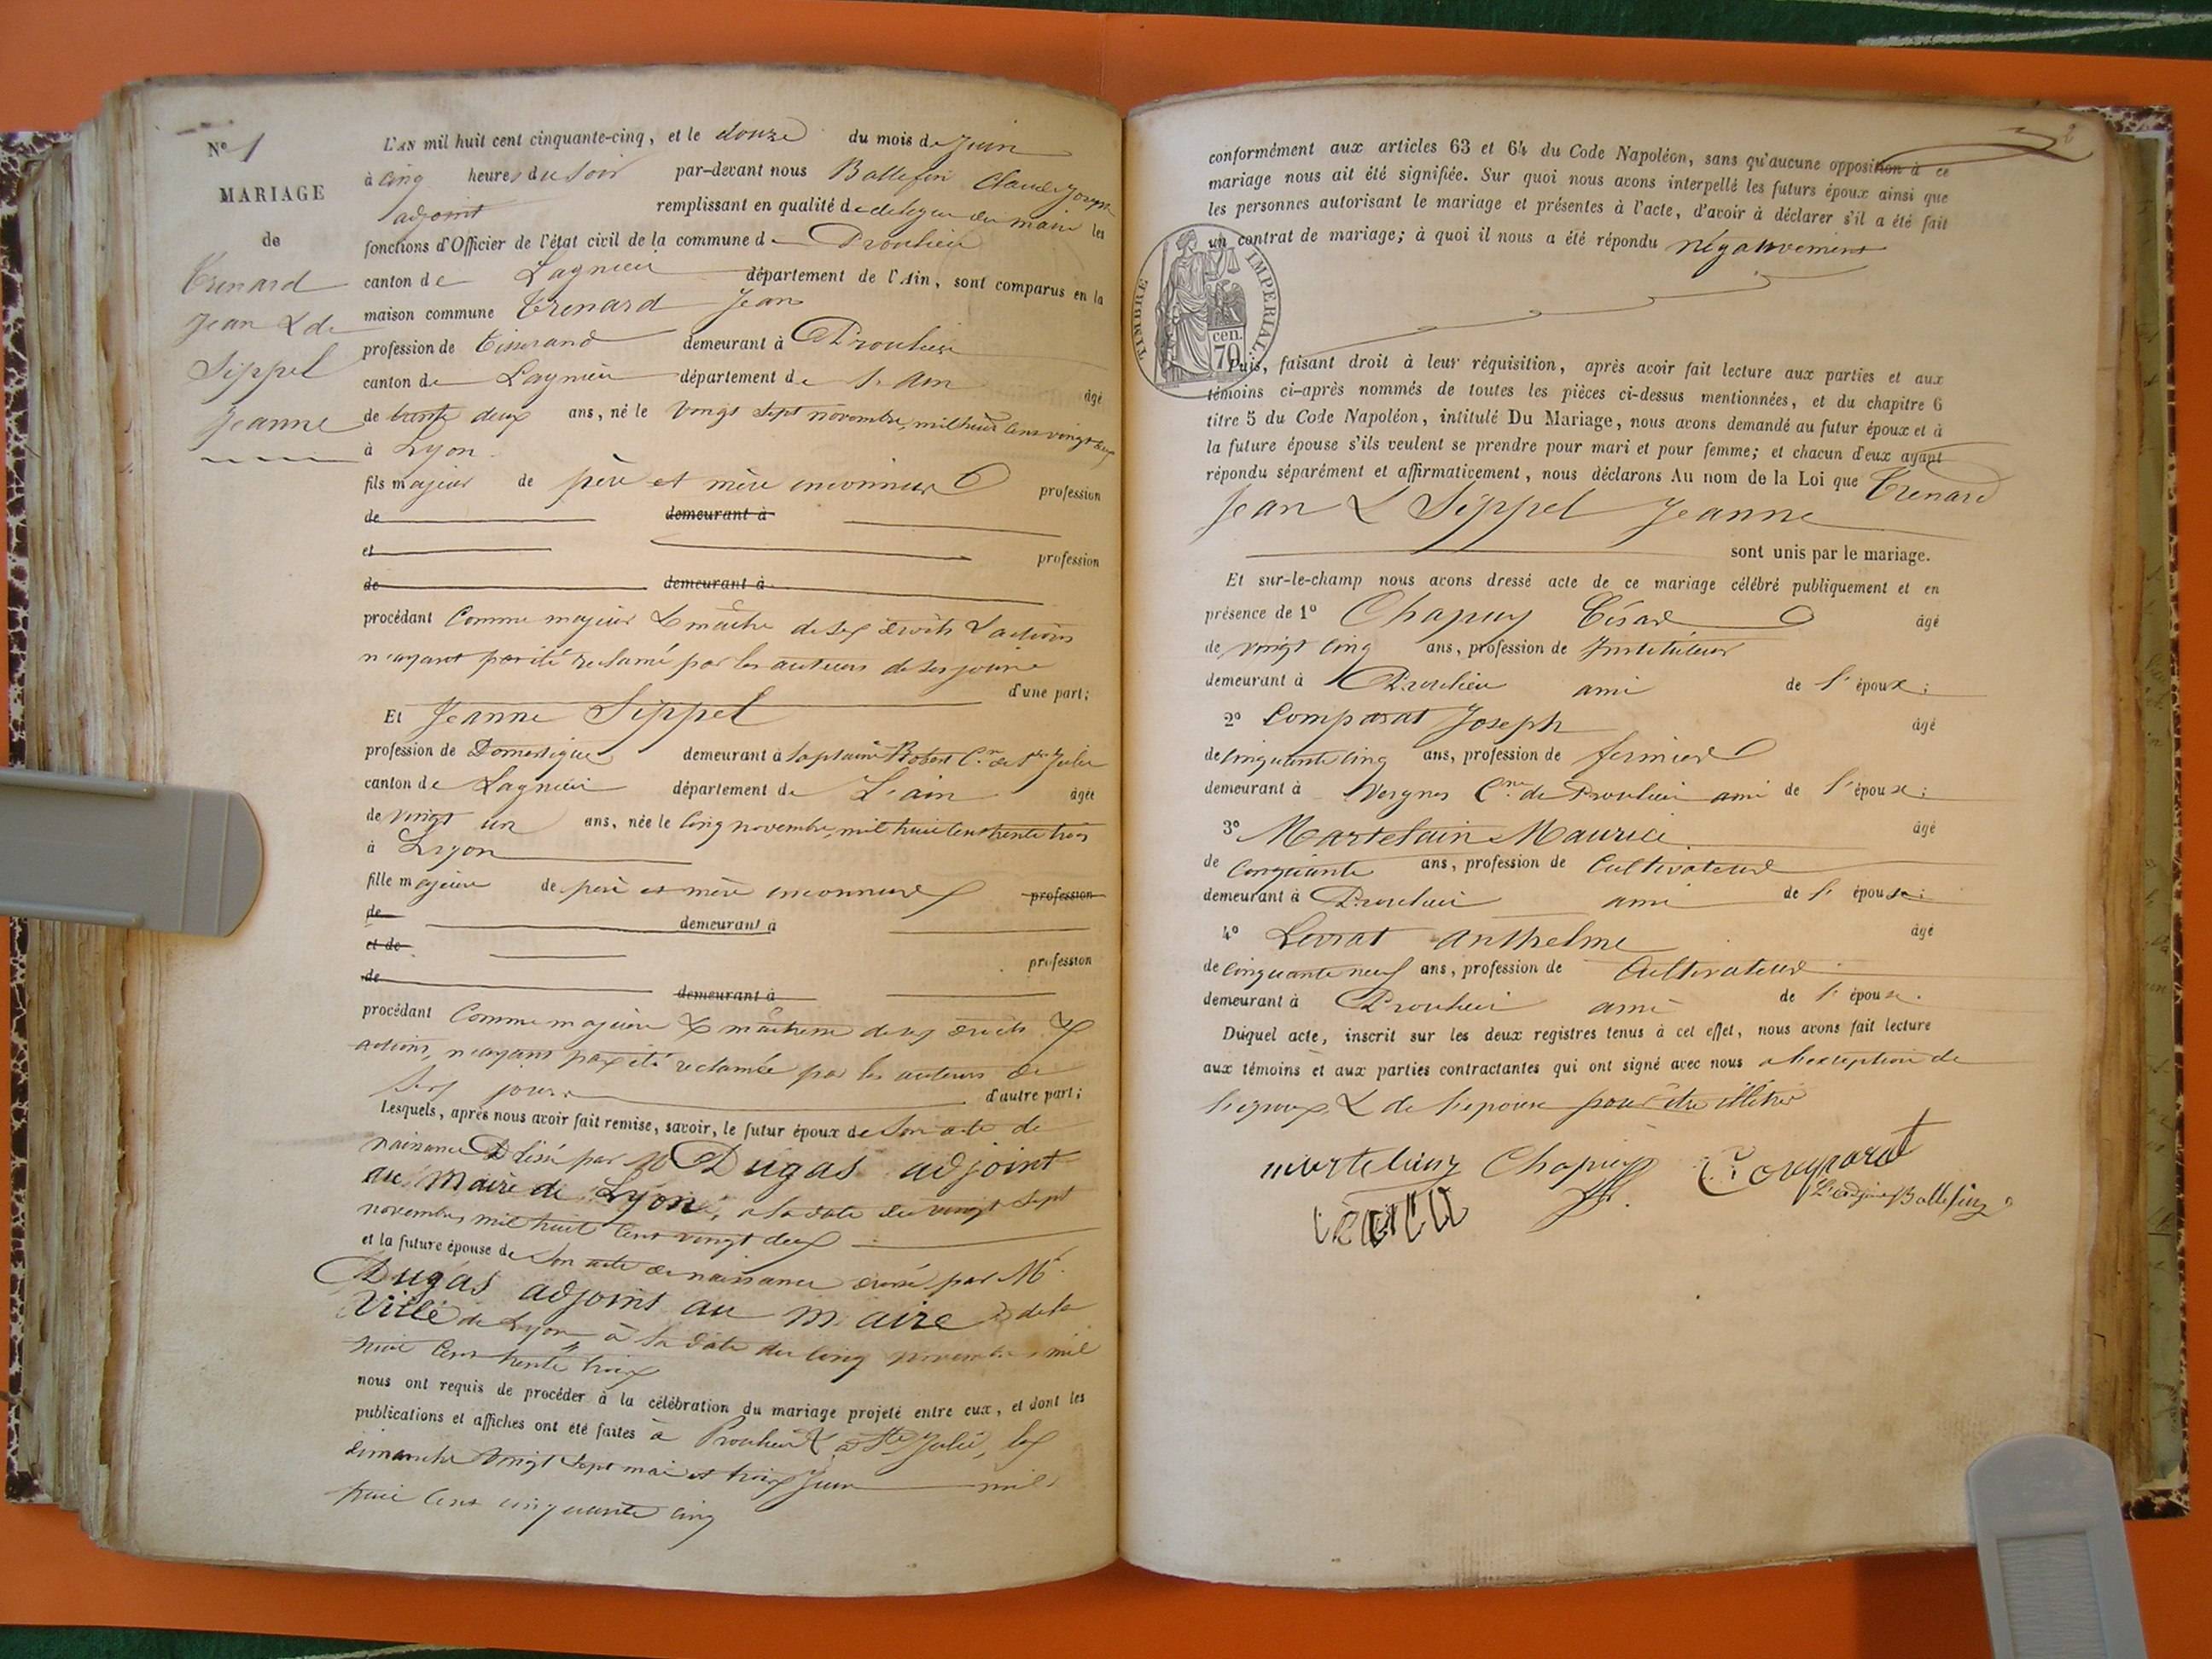 N° 1
MARIAGE
de
Trenard
Jean & de
Sippel
Jeanne
L'AN mil huit cent cinquante-cinq, et le douze du mois de Juin
à cinq heures du soir par-devant nous Ballefin Claude Joseph
adjoint remplissant en qualité de délégué du maire les
fonctions d'Officier de l'état civil de la commune de Proulieu
canton de Lagnieu département de l'Ain, sont comparus en la
maison commune Trenard Jean
profession de Tisserand demeurant à Proulieu
canton de Lagnieu département de l'Ain âgé
de trente deux ans, né le vingt sept novembre, mil huit cent vingt deux
à Lyon
fils majeur de père et mère inconnus profession
de demeurant à
et profession
de demeurant à
procédant comme majeur & maître de ses droits & actions
n'ayant pas été réclamé par les auteurs de ses jours
d'une part;
Et Jeanne Sippel
profession de Domestique demeurant à la plaine Robert Cne de Ste Julie
canton de Lagnieu département de L'ain âgée
de vingt un ans, née le cinq novembre, mil huit cent trente trois
à Lyon
fille majeure de père et mère inconnus profession
de demeurant à
et de profession
de demeurant à
procédant comme majeure & maîtresse de ses droits &
actions, n'ayant pas été réclamée par les auteurs de
ses jours d'autre part;
Lesquels, après nous avoir fait remise, savoir, le futur époux de son acte de
naissance Délivré par M Dugas adjoint
au Maire de Lyon, à la date du vingt sept
novembre mil huit cent vingt deux
et la future épouse de son acte de naissance dressé par Mr
Dugas adjoint au maire de la
Ville de Lyon à la date du cinq novembre mil
huit cent trente trois
nous ont requis de procéder à la célébration du mariage projeté entre eux, et dont les
publications et affiches ont été faites à Proulieu & à Ste Julie, les
dimanche vingt sept mai et trois Juin mil
huit cent cinquante cinq
2
conformément aux articles 63 et 64 du Code Napoléon, sans qu'aucune opposition à ce
mariage nous ait été signifiée. Sur quoi nous avons interpellé les futurs époux ainsi que
les personnes autorisant le mariage et présentes à l'acte, d'avoir à déclarer s'il a été fait
un contrat de mariage; à quoi il nous a été répondu négativement
TIMBRE IMPERIAL
cen.
70
Puis, faisant droit à leur réquisition, après avoir fait lecture aux parties et aux
témoins ci-après nommés de toutes les pièces ci-dessus mentionnées, et du chapitre 6
titre 5 du Code Napoléon, intitulé Du Mariage, nous avons demandé au futur époux et à
la future épouse s'ils veulent se prendre pour mari et pour femme; et chacun d'eux ayant
répondu séparément et affirmativement, nous déclarons Au nom de la Loi que Trenard
Jean & Sippel Jeanne
sont unis par le mariage.
Et sur-le-champ nous avons dressé acte de ce mariage célébré publiquement et en
présence de 1° Chapuy César âgé
de vingt cinq ans, profession de Instituteur
demeurant à Proulieu ami de l'époux;
2° Comparat Joseph âgé
de cinquante cinq ans, profession de fermier
demeurant à Vergnes Cne de Proulieu ami de l'époux;
3° Martelain Maurice âgé
de Cinquante ans, profession de Cultivateur
demeurant à Proulieu ami de l'épouse;
4° Levrat Anthelme âgé
de cinquante neuf ans, profession de Cultivateur
demeurant à Proulieu ami de l'épouse.
Duquel acte, inscrit sur les deux registres tenus à cet effet, nous avons fait lecture
aux témoins et aux parties contractantes qui ont signé avec nous à l'exception de
l'époux & de l'épouse pour être illétrés
martelain Chapuy Comparat
L'adjoint Ballefin